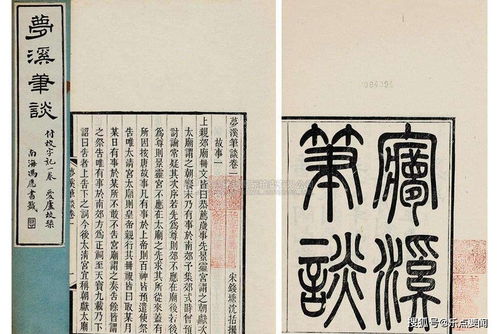 夢溪筆談
付校字記一卷
南海馮應書籤
夢溪筆談卷一
宋錢塘沈括撰
故事一
上親郊廟冊文皆曰恭薦歲事先景靈宮謂之朝獻次
太廟謂之朝饗末乃有事於南郊予集郊式時曾預
討論常疑其次序若先為尊則郊不應在廟後若後
為尊則景靈宮不應在太廟之先求其所從來蓋有
所因按唐故事凡有事於上帝則百神皆預遣使祭
告唯太清宮太廟則皇帝親行其冊祝皆曰取某月
某日有事於某所不敢不告宮廟謂之奏告餘皆謂
之祭告唯有事於南郊方為正祠至天寶九載乃下
詔曰告者上告下之詞今後太清宮宜稱朝獻太廟
夢溪筆談卷一
夢溪
筆談
搜狐号@乐点漫闻